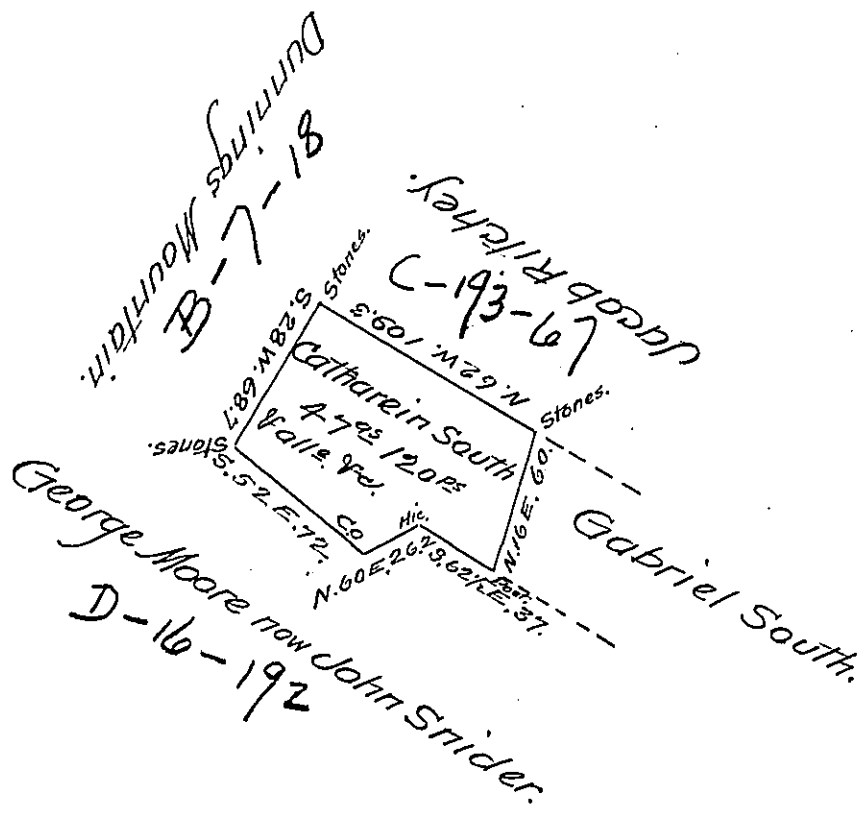 Dunnings Mountain.
B-7-18
Jacob Ritchey.
C-193-67
Stones.
N.62W. 109.3
Stones.
S.28W. 68.7
Stones.
Catharein South
47as 120ps
& alls. &c.
S.52E.72.
C.O
N.60E.26.2
Hic.
S.62½E.37.
Post.
N.16E.60.
Gabriel South.
George Moore now John Snider.
D-16-192